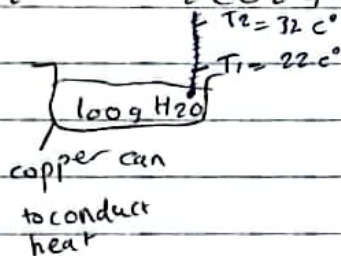 T2 = 32 c°
T1 = 22 c°
100g H2O
copper can
to conduct
heat